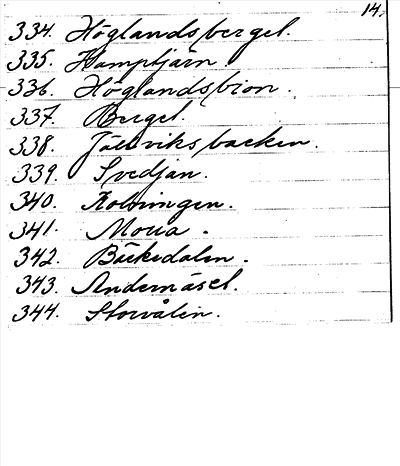 14.
334. Höglandsberget.
335. Hamptjärn
336. Höglandsbron.
337. Berget.
338. Jättviksbacken.
339. Svedjan.
340. Kolningen.
341. Moua.
342. Bäckedalen.
343. Andernäset.
344. Storvålen.